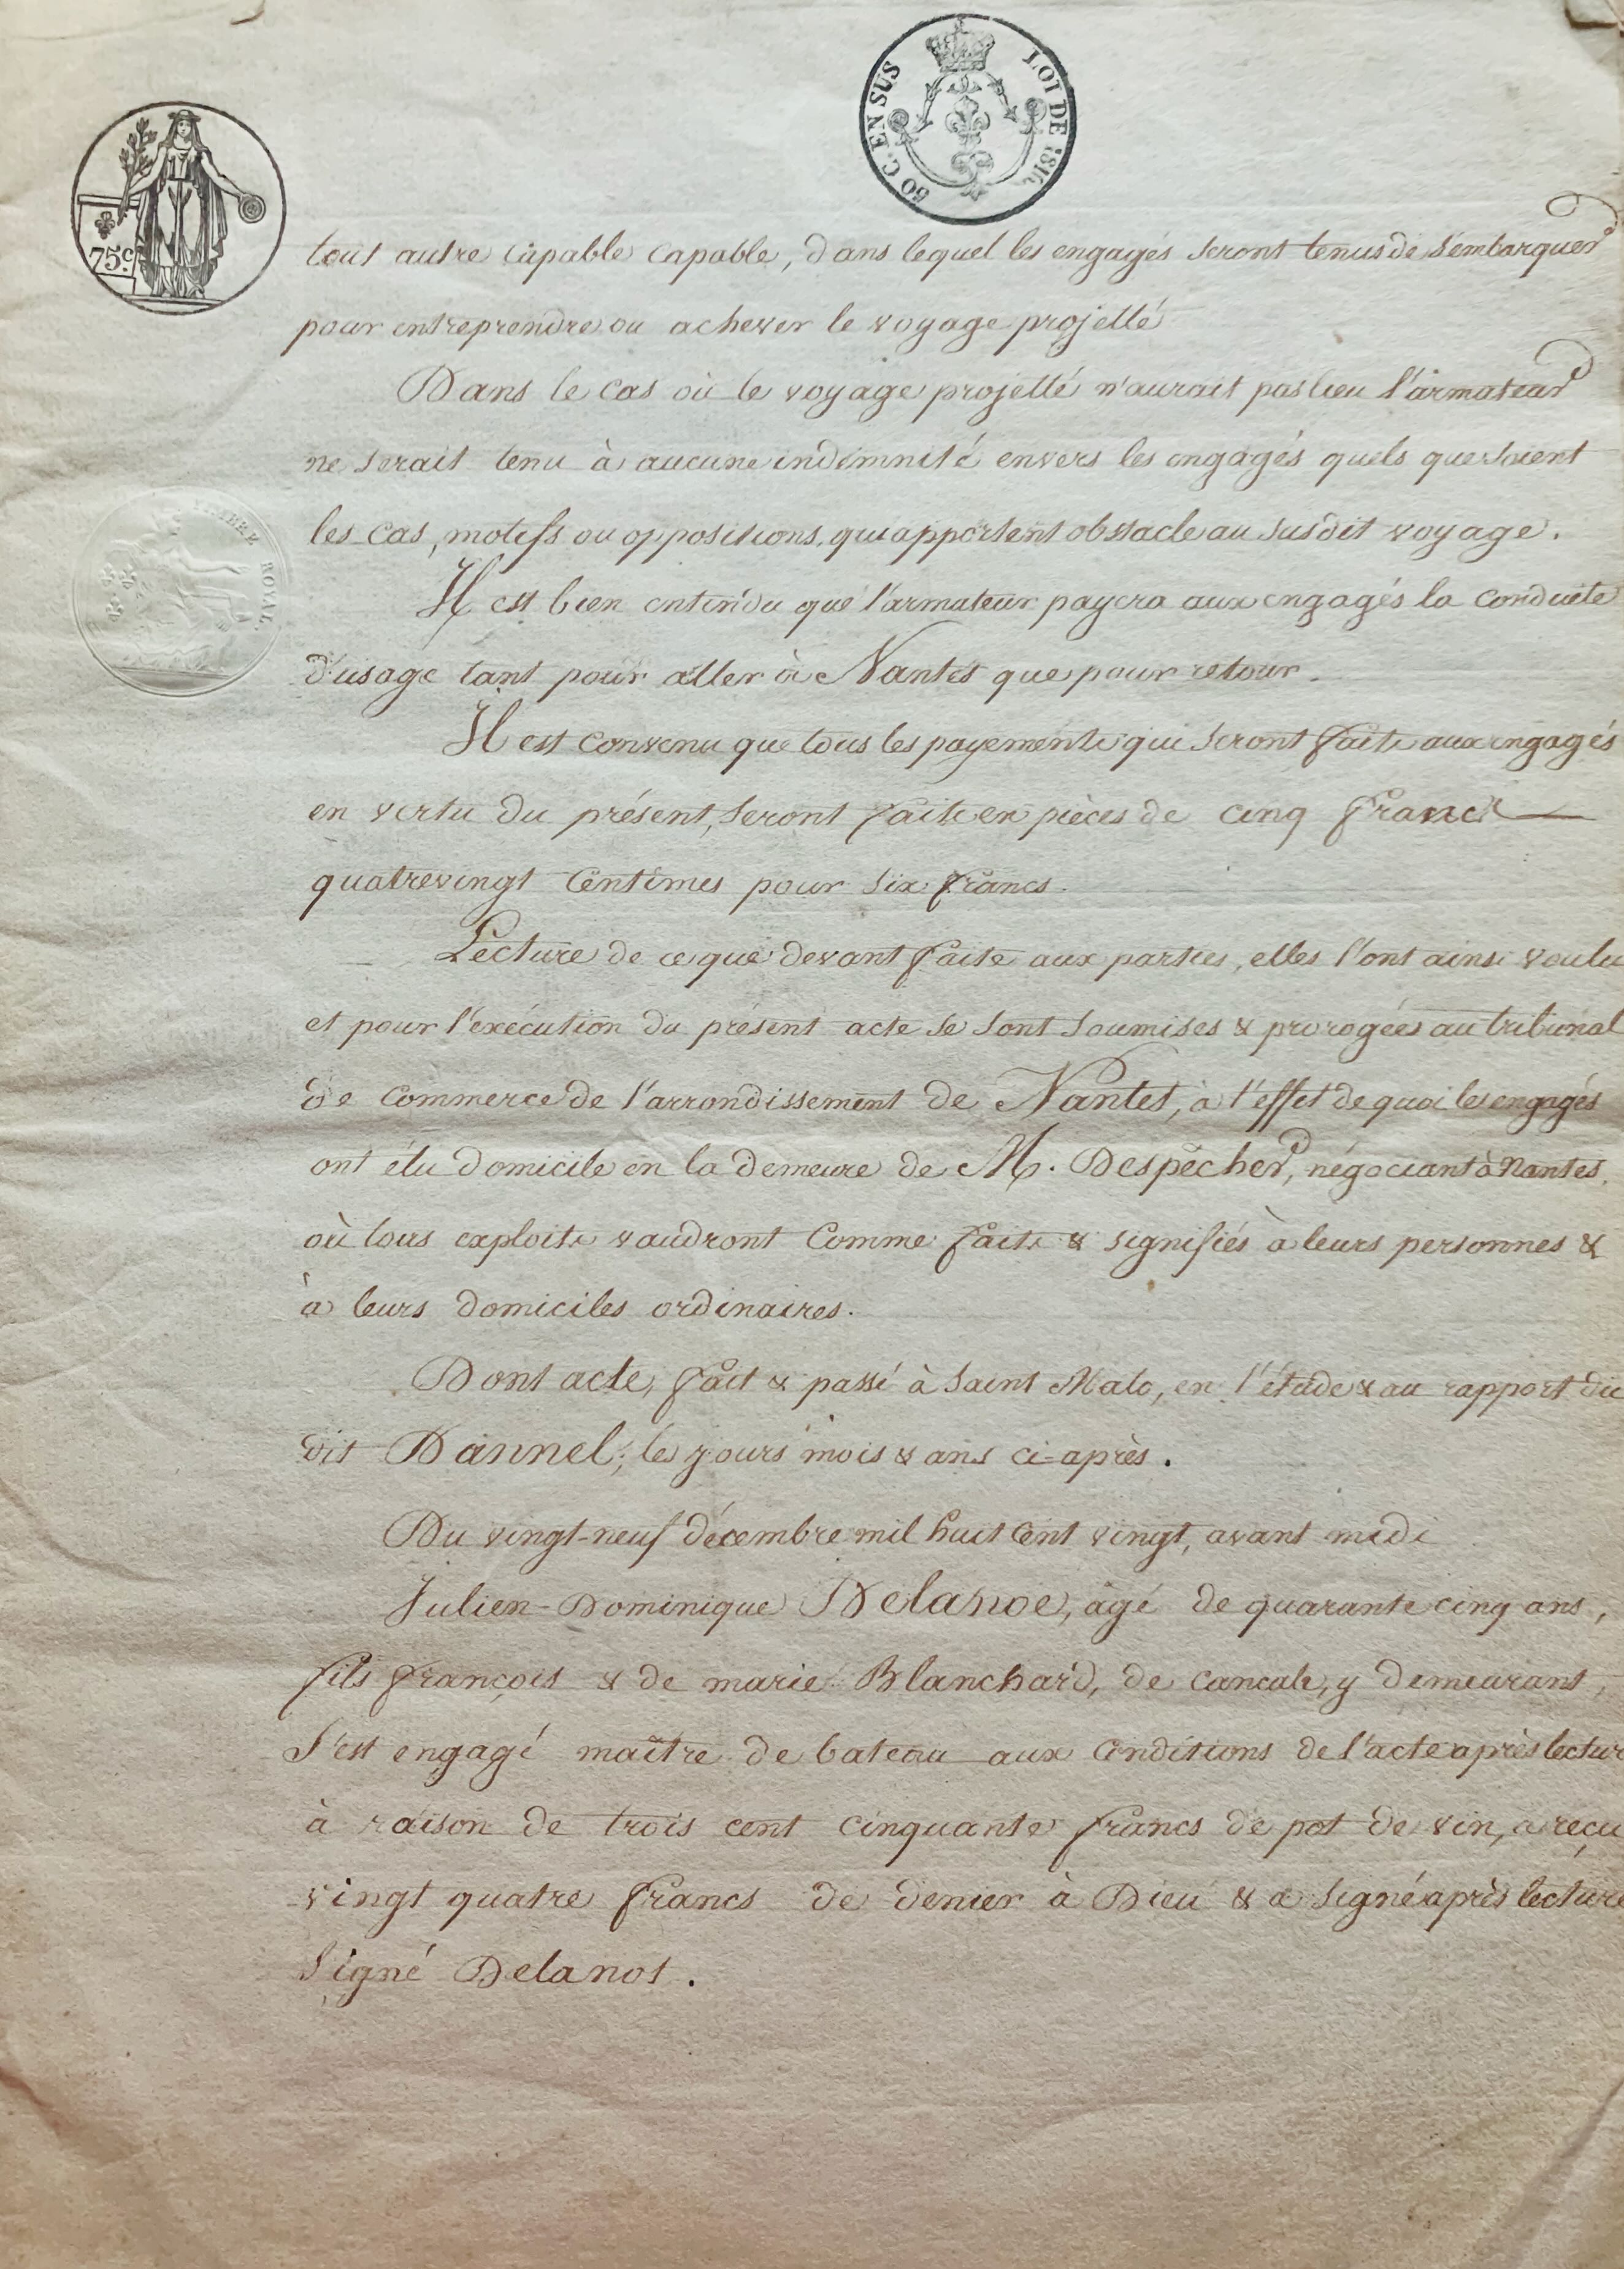 50 C. EN SUS
LOI DE 1816
75c
TIMBRE ROYAL
tout autre capable capable, dans lequel les engagés seront tenus de s'embarquer
pour entreprendre ou achever le voyage projetté
Dans le cas où le voyage projetté n'aurait pas lieu l'armateur
ne serait tenu à aucune indemnité envers les engagés quels que soient
les cas, motifs ou oppositions, qui apportent obstacle au susdit voyage.
Il est bien entendu que l'armateur payera aux engagés la conduite
d'usage tant pour aller à Nantes que pour retour.
Il est convenu que tous les payements qui seront faits aux engagés
en vertu du présent, seront faits en pièces de cinq francs
quatrevingt centimes pour six francs.
Lecture de ce que devant faite aux parties, elles l'ont ainsi voulu
et pour l'exécution du présent acte se sont soumises & prorogées au tribunal
de commerce de l'arrondissement de Nantes, à l'effet de quoi les engagés
ont élu domicile en la demeure de M. Despècher, négociant à Nantes,
où tous exploits vaudront comme faits & signifiés à leurs personnes &
à leurs domiciles ordinaires.
Dont acte, fait & passé à Saint Malo, en l'étude & au rapport du
dit Dannel, les jours mois & ans ci-après.
Du vingt-neuf décembre mil huit cent vingt, avant midi
Julien-Dominique Delanoe, âgé de quarante cinq ans,
fils françois & de marie Blanchard, de cancale, y demeurant,
s'est engagé maître de bateau aux conditions de l'acte après lecture
à raison de trois cent cinquante francs de pot de vin, a reçu
vingt quatre francs de denier à Dieu & a signé après lecture
Signé Delanos.